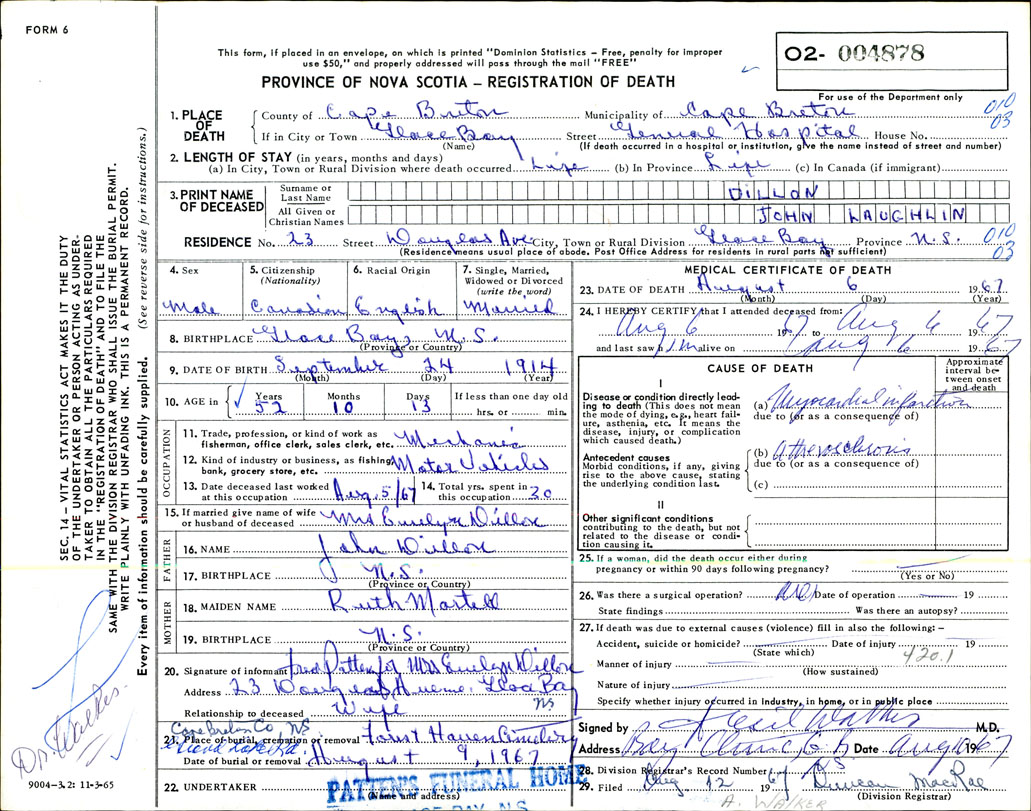 FORM 6
This form, if placed in an envelope, on which is printed "Dominion Statistics – Free, penalty for improper
use $50," and properly addressed will pass through the mail "FREE"
PROVINCE OF NOVA SCOTIA – REGISTRATION OF DEATH
02- 004878
For use of the Department only
1. PLACE OF DEATH
County of Cape Breton Municipality of Cape Breton 010
If in City or Town Glace Bay Street General Hospital House No. 03
(Name) (If death occurred in a hospital or institution, give the name instead of street and number)
2. LENGTH OF STAY (in years, months and days)
(a) In City, Town or Rural Division where death occurred Life (b) In Province Life (c) In Canada (if immigrant)
3. PRINT NAME OF DECEASED
Surname or Last Name DILLON
All Given or Christian Names JOHN LAUGHLIN
RESIDENCE No. 23 Street Douglas Ave City, Town or Rural Division Glace Bay Province N.S. 010
(Residence means usual place of abode. Post Office Address for residents in rural parts not sufficient) 03
4. Sex
Male
5. Citizenship (Nationality)
Canadian
6. Racial Origin
English
7. Single, Married, Widowed or Divorced (write the word)
Married
8. BIRTHPLACE Glace Bay, N.S.
(Province or Country)
9. DATE OF BIRTH September 24 1914
(Month) (Day) (Year)
10. AGE in Years Months Days If less than one day old
52 10 13 hrs. or min.
OCCUPATION
11. Trade, profession, or kind of work as Mechanic
fisherman, office clerk, sales clerk, etc.
12. Kind of industry or business, as fishing, Motor Vehicles
bank, grocery store, etc.
13. Date deceased last worked at this occupation Aug. 5/67
14. Total yrs. spent in this occupation 30
15. If married give name of wife or husband of deceased Mrs Evelyn Dillon
FATHER
16. NAME John Dillon
17. BIRTHPLACE N.S.
(Province or Country)
MOTHER
18. MAIDEN NAME Ruth Martell
19. BIRTHPLACE N.S.
(Province or Country)
20. Signature of informant Mrs Evelyn Dillon
Address 23 Douglas Avenue, Glace Bay
NS
Relationship to deceased Wife
Cape Breton Co, NS
21. Place of burial, cremation or removal Forest Haven Cemetery
Date of burial or removal August 9, 1967
22. UNDERTAKER PATTEN'S FUNERAL HOME
(Name and address)
MEDICAL CERTIFICATE OF DEATH
23. DATE OF DEATH August 6 1967
(Month) (Day) (Year)
24. I HEREBY CERTIFY that I attended deceased from:
Aug 6 1967 to Aug 6 1967
and last saw him alive on Aug 6 1967
CAUSE OF DEATH
Approximate interval between onset and death
I
Disease or condition directly leading to death (This does not mean the mode of dying, e.g., heart failure, asthenia, etc. It means the disease, injury, or complication which caused death.)
(a) Myocardial infarction
due to (or as a consequence of)
Antecedent causes
Morbid conditions, if any, giving rise to the above cause, stating the underlying condition last.
(b) Atherosclerosis
due to (or as a consequence of)
(c)
II
Other significant conditions
contributing to the death, but not related to the disease or condition causing it.
25. If a woman, did the death occur either during
pregnancy or within 90 days following pregnancy?
(Yes or No)
26. Was there a surgical operation? Date of operation 19
State findings Was there an autopsy?
27. If death was due to external causes (violence) fill in also the following:–
Accident, suicide or homicide? Date of injury 19
(State which) 420.1
Manner of injury
(How sustained)
Nature of injury
Specify whether injury occurred in Industry, in home, or in public place
Signed by M.D.
Address Bay Clinic, G B Date Aug 1967
28. Division Registrar's Record Number
29. Filed Aug. 12 1967 Duncan MacRae
(Division Registrar)
A. WALKER
SEC. 14 – VITAL STATISTICS ACT MAKES IT THE DUTY
OF THE UNDERTAKER OR PERSON ACTING AS UNDER-
TAKER TO OBTAIN ALL THE PARTICULARS REQUIRED
IN THE "REGISTRATION OF DEATH" AND TO FILE THE
SAME WITH THE DIVISION REGISTRAR WHO SHALL ISSUE THE BURIAL PERMIT.
WRITE PLAINLY WITH UNFADING INK. THIS IS A PERMANENT RECORD.
Every item of information should be carefully supplied. (See reverse side for instructions.)
Dr. Walker
9004-3.2: 11-3-65